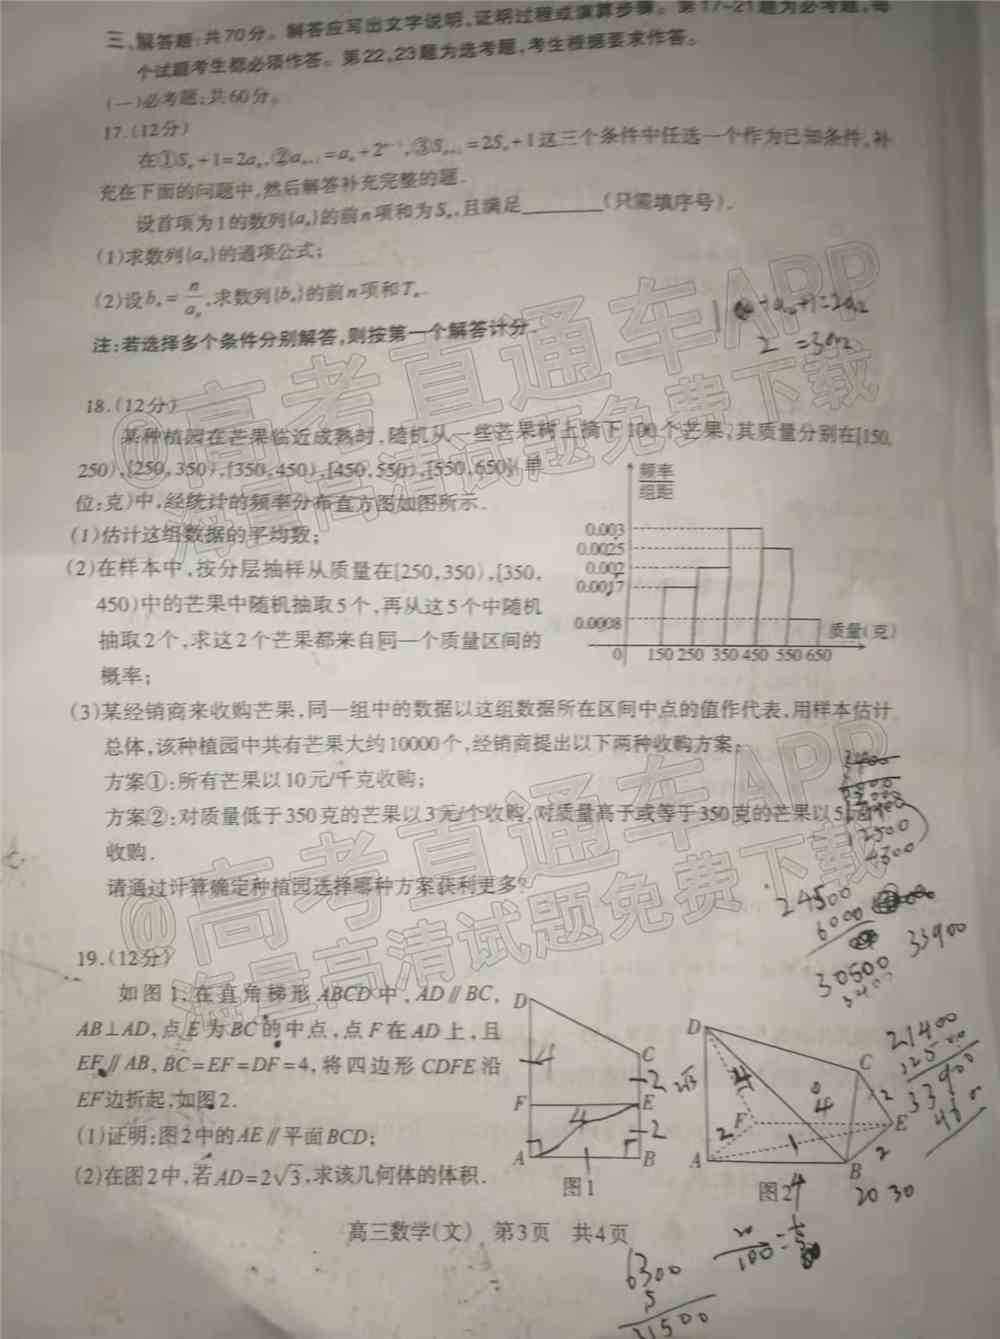 三、解答题:共70分。解答应写出文字说明、证明过程或演算步骤。第17~21题为必考题,每
个试题考生都必须作答。第22、23题为选考题,考生根据要求作答。
(一)必考题:共60分。
17.(12分)
在①Sₙ+1=2aₙ,②aₙ₊₁=aₙ+2ⁿ⁻¹,③Sₙ₊₁=2Sₙ+1这三个条件中任选一个作为已知条件,补
充在下面的问题中,然后解答补充完整的题.
设首项为1的数列{aₙ}的前n项和为Sₙ,且满足________(只需填序号).
(1)求数列{aₙ}的通项公式;
(2)设bₙ=n/aₙ,求数列{bₙ}的前n项和Tₙ.
注:若选择多个条件分别解答,则按第一个解答计分.
18.(12分)
某种植园在芒果临近成熟时,随机从一些芒果树上摘下100个芒果,其质量分别在[150,
250),[250,350),[350,450),[450,550),[550,650](单
位:克)中,经统计的频率分布直方图如图所示.
(1)估计这组数据的平均数;
(2)在样本中,按分层抽样从质量在[250,350),[350,
450)中的芒果中随机抽取5个,再从这5个中随机
抽取2个,求这2个芒果都来自同一个质量区间的
概率;
频率
组距
0.003
0.0025
0.002
0.0017
0.0008
0 150 250 350 450 550 650
质量(克)
(3)某经销商来收购芒果,同一组中的数据以这组数据所在区间中点的值作代表,用样本估计
总体,该种植园中共有芒果大约10000个,经销商提出以下两种收购方案:
方案①:所有芒果以10元/千克收购;
方案②:对质量低于350克的芒果以3元/个收购,对质量高于或等于350克的芒果以5
收购.
请通过计算确定种植园选择哪种方案获利更多?
24500
6000
30500
33900
21400
19.(12分)
如图1,在直角梯形ABCD中,AD∥BC,
AB⊥AD,点E为BC的中点,点F在AD上,且
EF∥AB,BC=EF=DF=4,将四边形CDFE沿
EF边折起,如图2.
(1)证明:图2中的AE∥平面BCD;
(2)在图2中,若AD=2√3,求该几何体的体积.
D
C
F
E
A
B
4
2
4
2
图1
D
C
F
E
A
B
2√3
4
2
4
2
2
图2
20 30
高三数学(文) 第3页 共4页
20/100
6300
5
31500
@高考直通车APP
海量高清试题免费下载
@高考直通车APP
海量高清试题免费下载